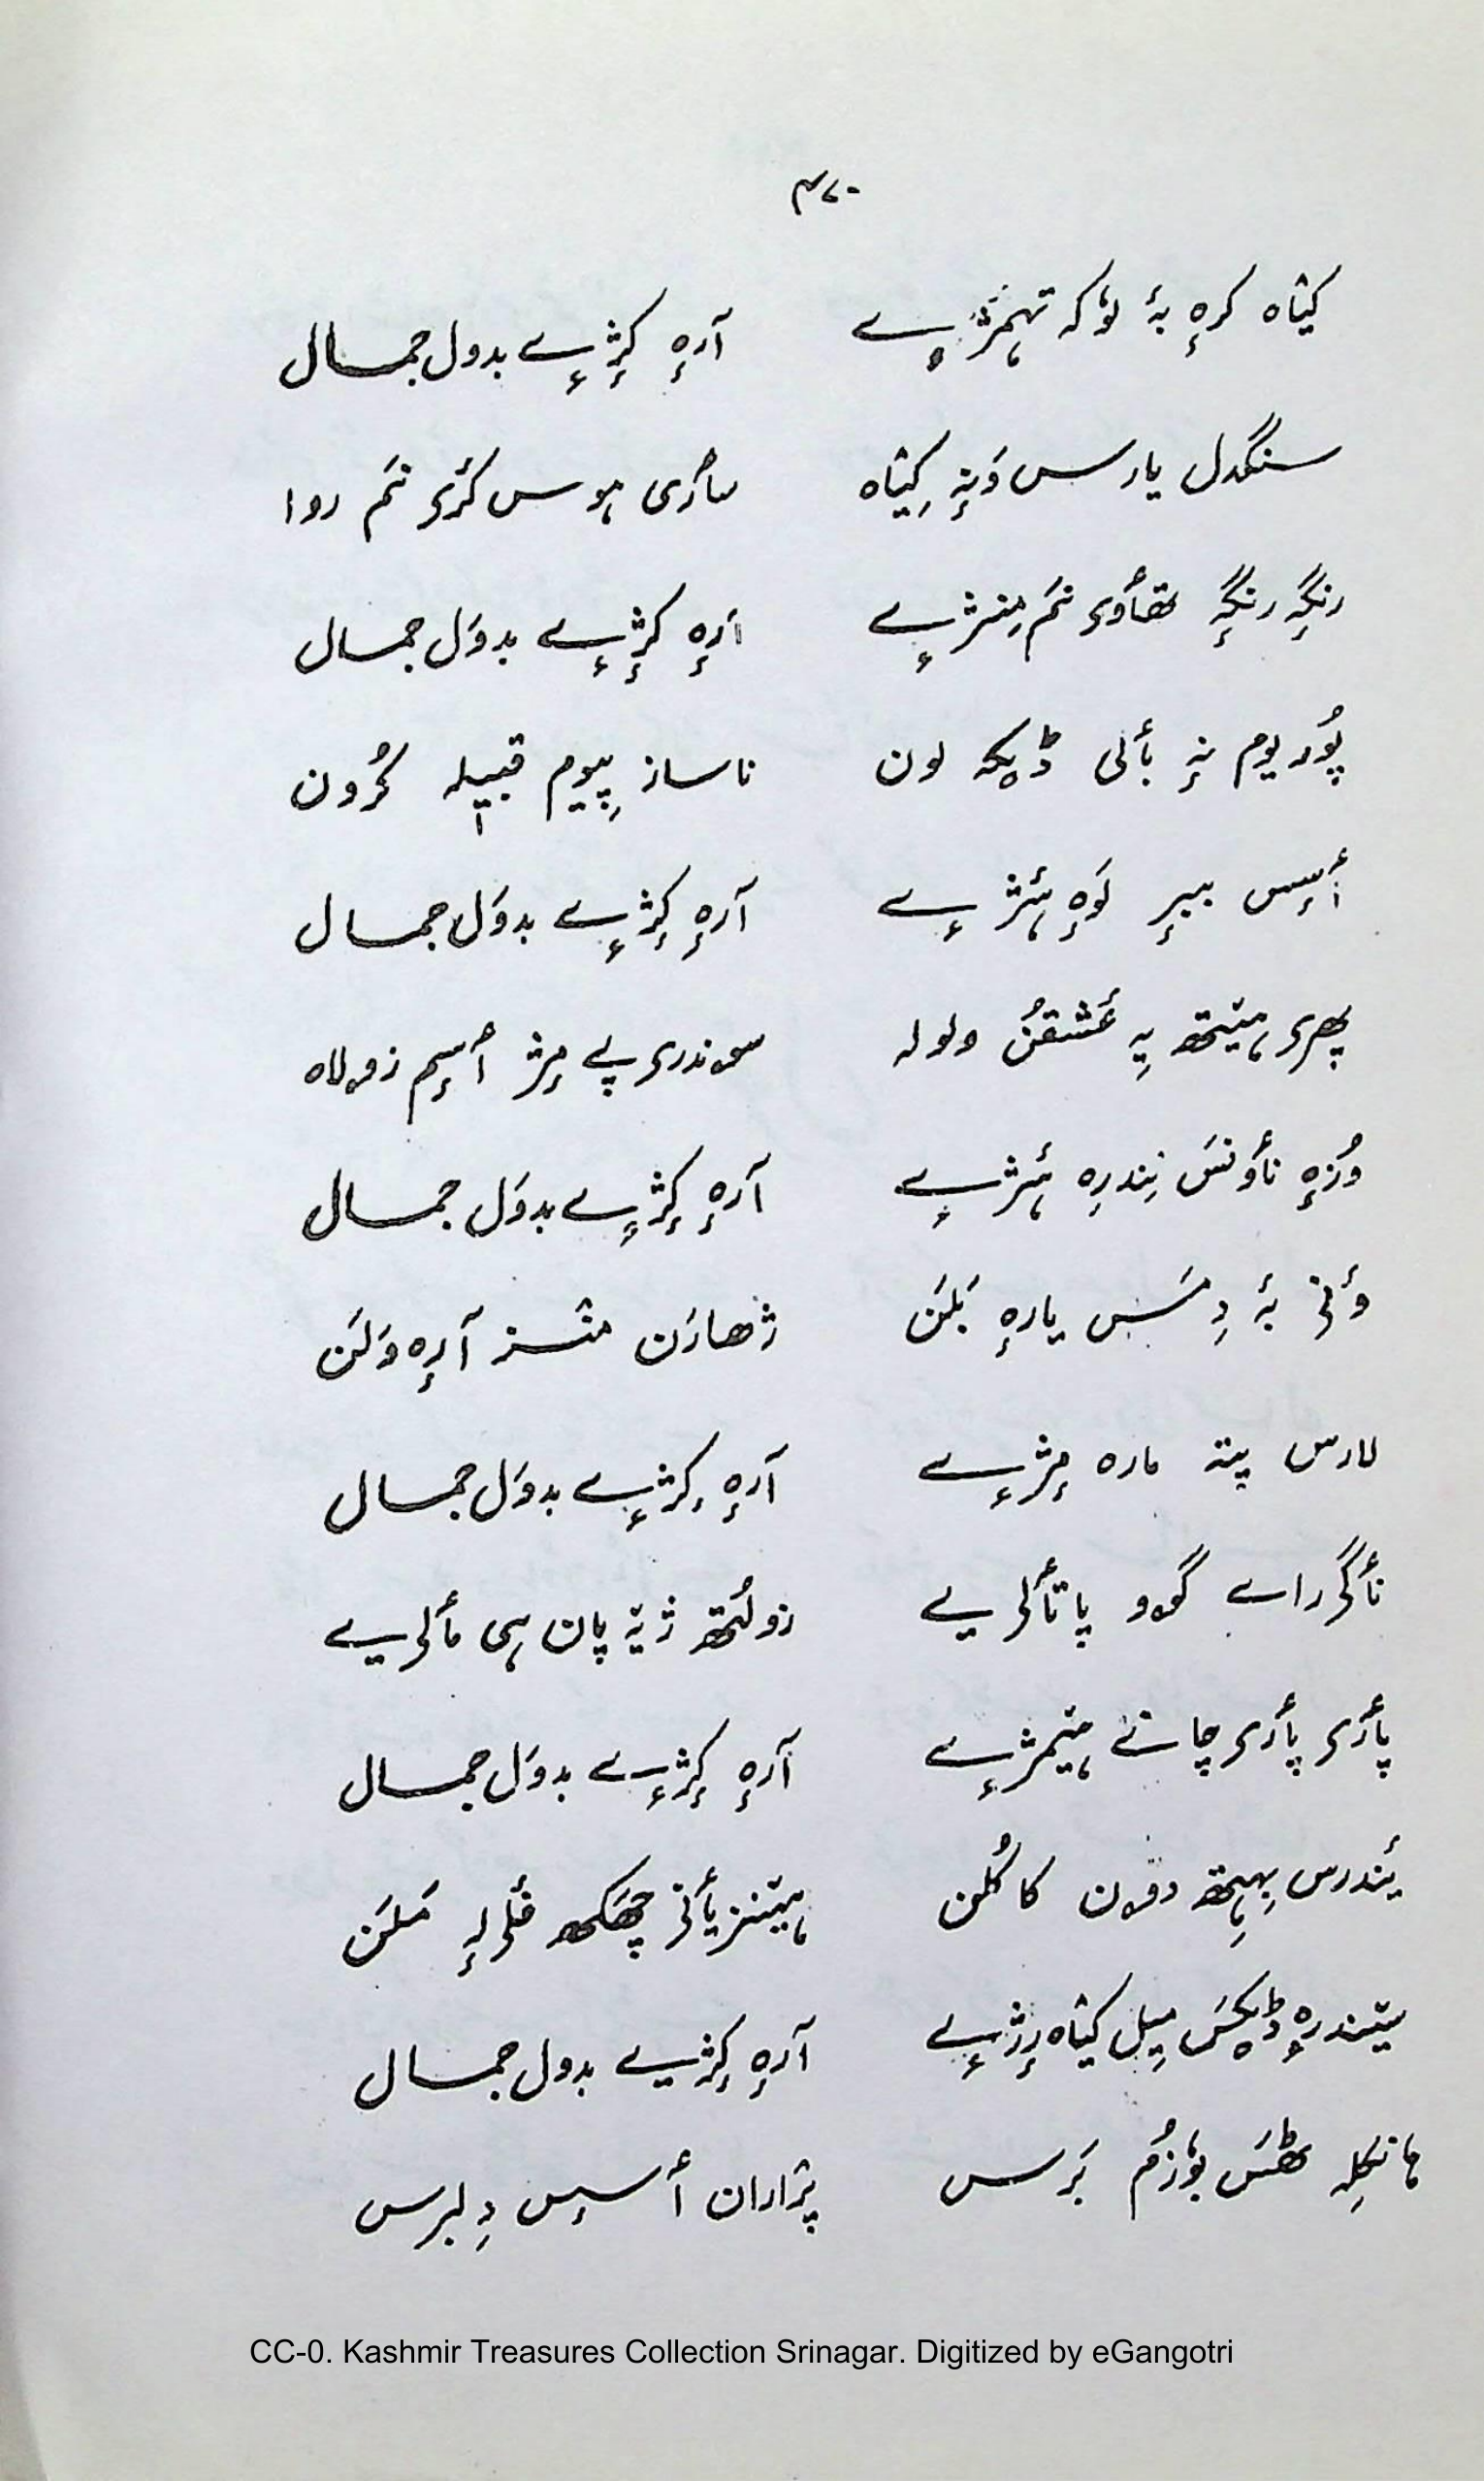 ۴۷۰
کیٛاہ کرہٕ بۂ لوٗکہ تہمژٕیے آرہٕ کٕژٕیے بدول جمال
سنگدل یارس وَنہٕ کِیٛاہ سٲرؠ ہوس کٔرؠ نَم روا
رنگہٕ رنگہٕ تھٲوؠ نَم مِنژٕیے آرہٕ کٕژٕیے بدوَل جمال
پوٗر یوم نہٕ بٲلی ڈیکہ لون ناساز پیوم قبیلہ کرُٛون
ٲسٕس ببرٕ لَوہٕ ۂنژٕیے آرہٕ کٕژٕیے بدوَل جمال
پھرؠ ہیٚتھ یہِ عٔشقُن ولولہ سوندرؠ پے مٕژ ٲسٕم زولاہ
وُزہٕ ناونَس نِندرِہ ۂنژٕیے آرہٕ کٕژٕیے بدوَل جمال
وٲنؠ بۂ دِمسَس یارہٕ بَلَن ژھارَن منٛز آرٕہ وَلَن
لارس پتہ مارہ مٕژٕیے آرہٕ کٕژٕیے بدوَل جمال
ناگؠ راے گوو پاتٲلؠ یے زولُتھ ژیٚہ پان ہی مٲلؠ یے
پٲرؠ پٲرؠ چانے ہیٚمژٕیے آرہٕ کٕژٕیے بدوَل جمال
یٔندرس بِہِتھ دوٚن کاکُلن ہیٚنز یٲنؠ چھَکھ فٔلؠ لہٕ مَلَن
سیٚندرٕہ ڈیکَس میل کیٛاہ رٕژٕیے آرہٕ کٕژٕیے بدول جمال
ہانکلہِ ٹھَس بوٗزُم بَرس پرٛاران ٲسٕس دِلبرس
CC-0. Kashmir Treasures Collection Srinagar. Digitized by eGangotri